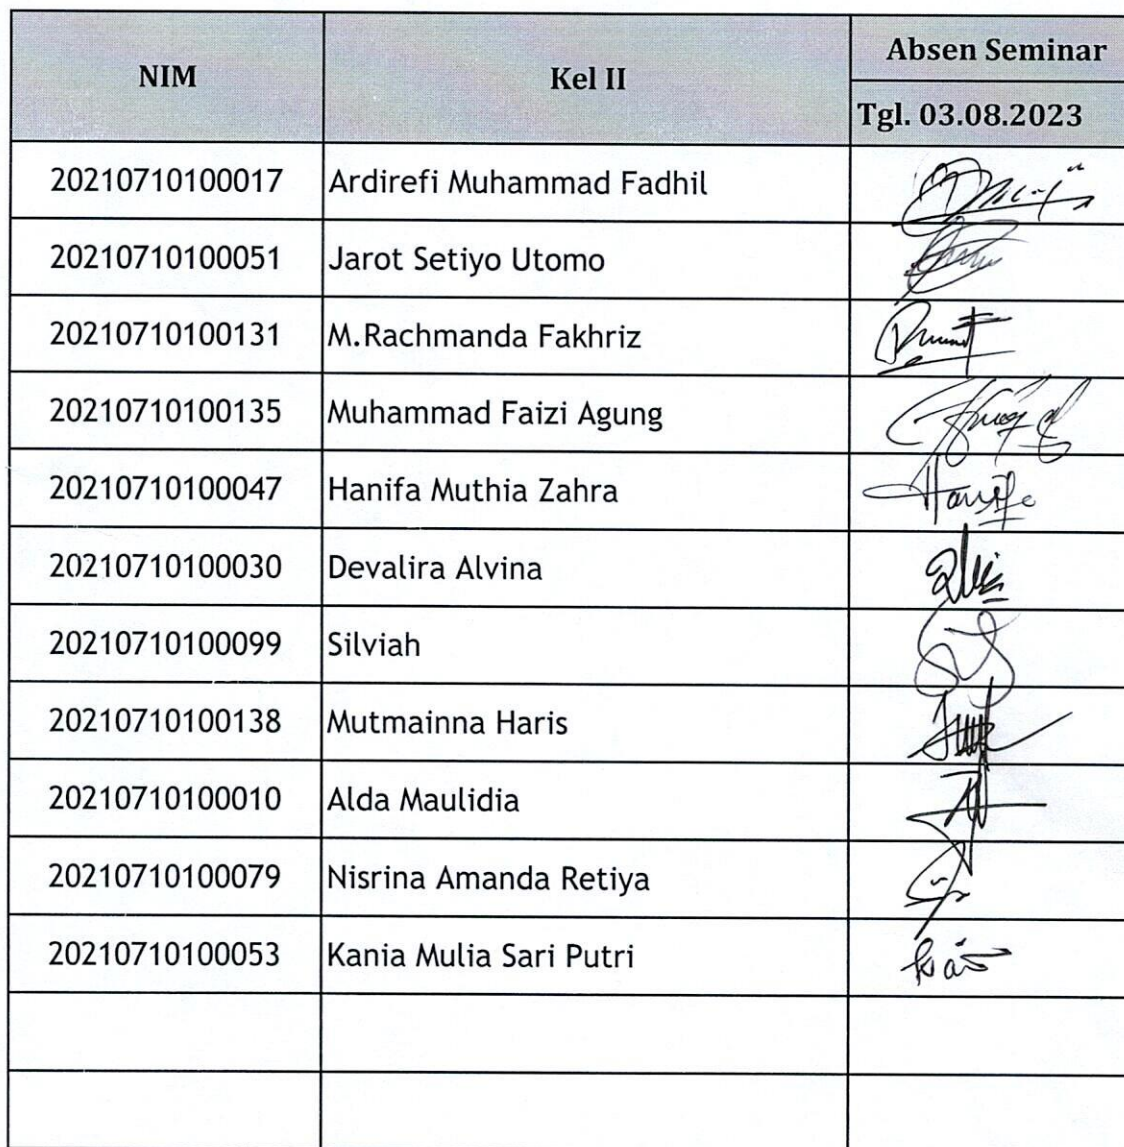 NIM Kel II Absen Seminar
Tgl. 03.08.2023
20210710100017 Ardirefi Muhammad Fadhil
20210710100051 Jarot Setiyo Utomo
20210710100131 M.Rachmanda Fakhriz
20210710100135 Muhammad Faizi Agung
20210710100047 Hanifa Muthia Zahra
20210710100030 Devalira Alvina
20210710100099 Silviah
20210710100138 Mutmainna Haris
20210710100010 Alda Maulidia
20210710100079 Nisrina Amanda Retiya
20210710100053 Kania Mulia Sari Putri